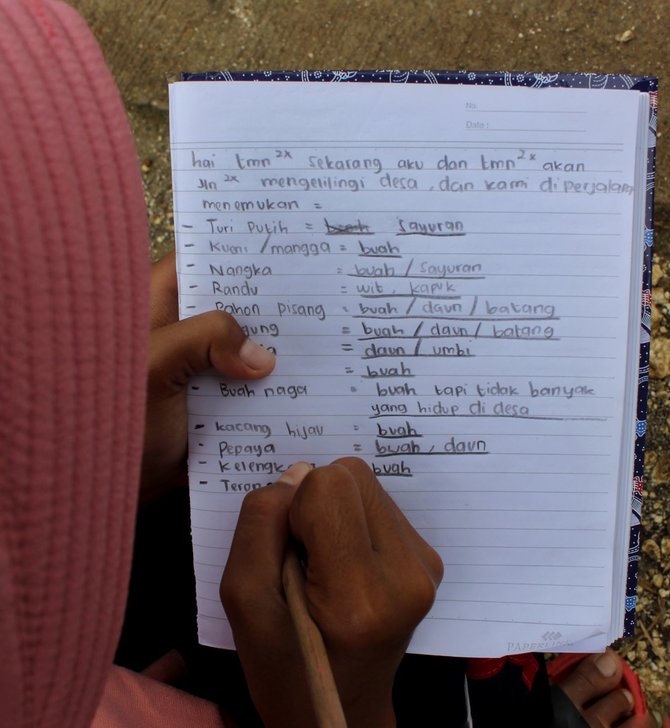 No.
Date :
hai tmn 2x sekarang aku dan tmn 2x akan
jln 2x mengelilingi desa, dan kami diperjalan
menemukan =
- Turi Putih = buah sayuran
- Kueni / mangga = buah
- Nangka = buah / sayuran
- Randu = wit, kapuk
- Pohon pisang = buah / daun / batang
= buah / daun / batang
= daun / umbi
= buah
- Buah naga = buah tapi tidak banyak
yang hidup di desa
- kacang hijau = buah
- Pepaya = buah, daun
- Kelengk buah
- Teron
PAPERLINE